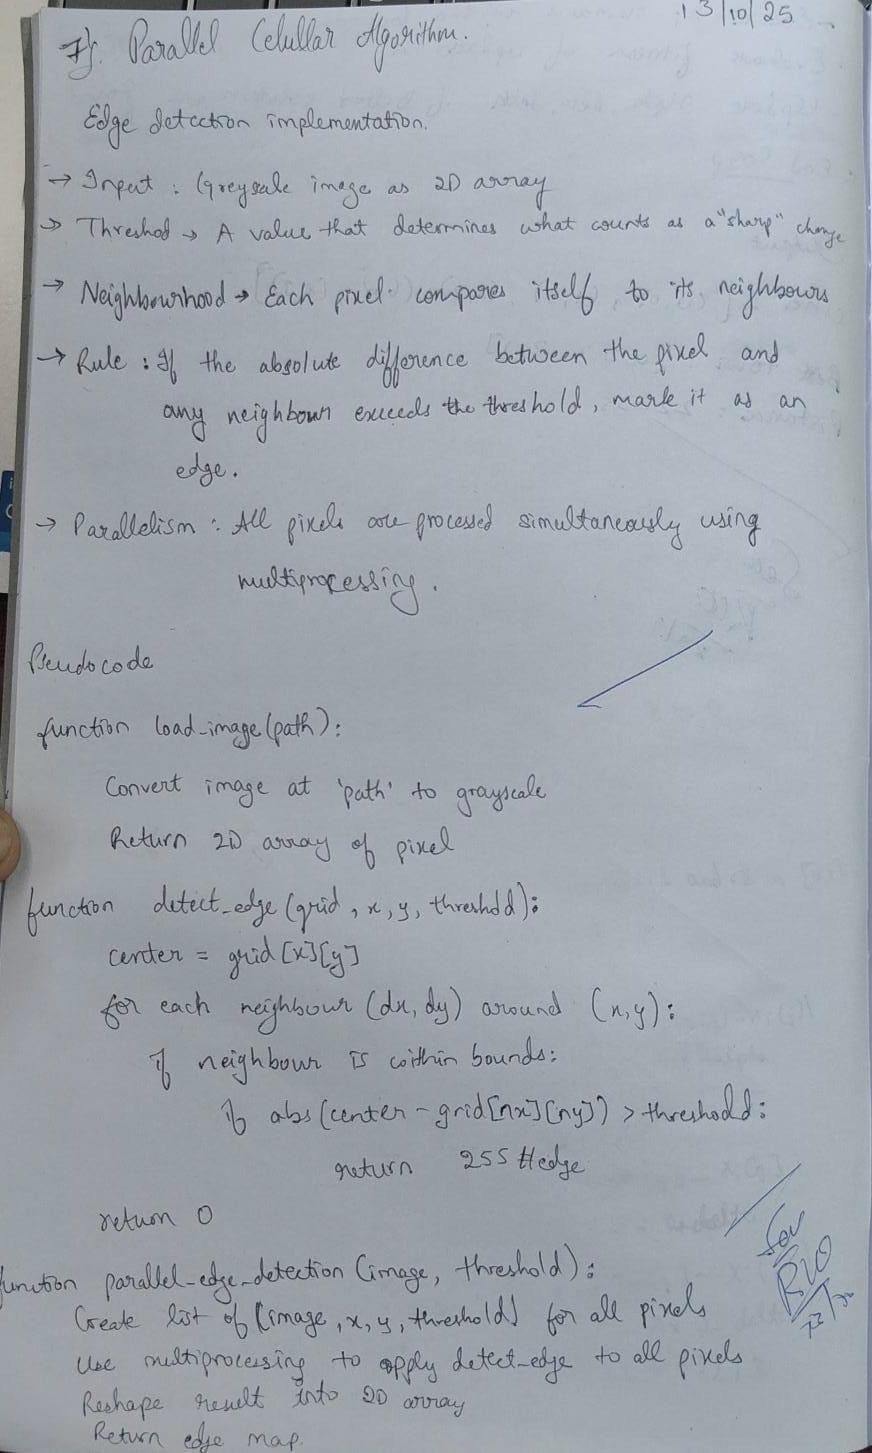 13/10/25
7). Parallel Celullar Algorithm.
Edge detection implementation.
→ Input : Greyscale image as 2D array
→ Threshod → A value that determines what counts as a "sharp" change
→ Neighbourhood → Each pixel compares itself to its neighbours
→ Rule : If the absolute difference between the pixel and
any neighbour exceeds the threshold, mark it as an
edge.
→ Parallelism : All pixels are processed simultaneously using
multiprocessing.
Pseudocode
function load_image(path):
Convert image at 'path' to grayscale
Return 2D array of pixel
function detect_edge (grid, x, y, threshold):
center = grid [x][y]
for each neighbour (dx, dy) around (x,y):
if neighbour is within bounds:
if abs (center - grid[nx][ny]) > threshold:
return 255 #edge
return 0
function parallel_edge_detection (image, threshold):
Create list of (image, x, y, threshold) for all pixels
Use multiprocessing to apply detect_edge to all pixels
Reshape result into 2D array
Return edge map.